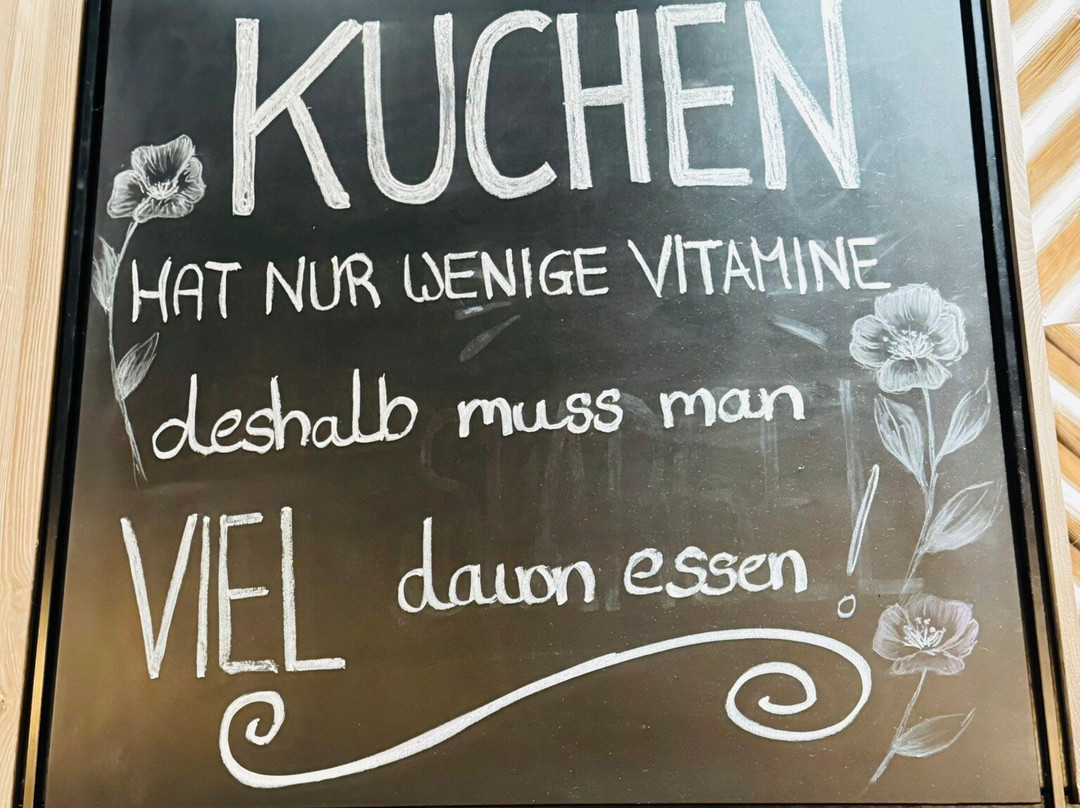 KUCHEN
HAT NUR WENIGE VITAMINE
deshalb muss man
VIEL davon essen!